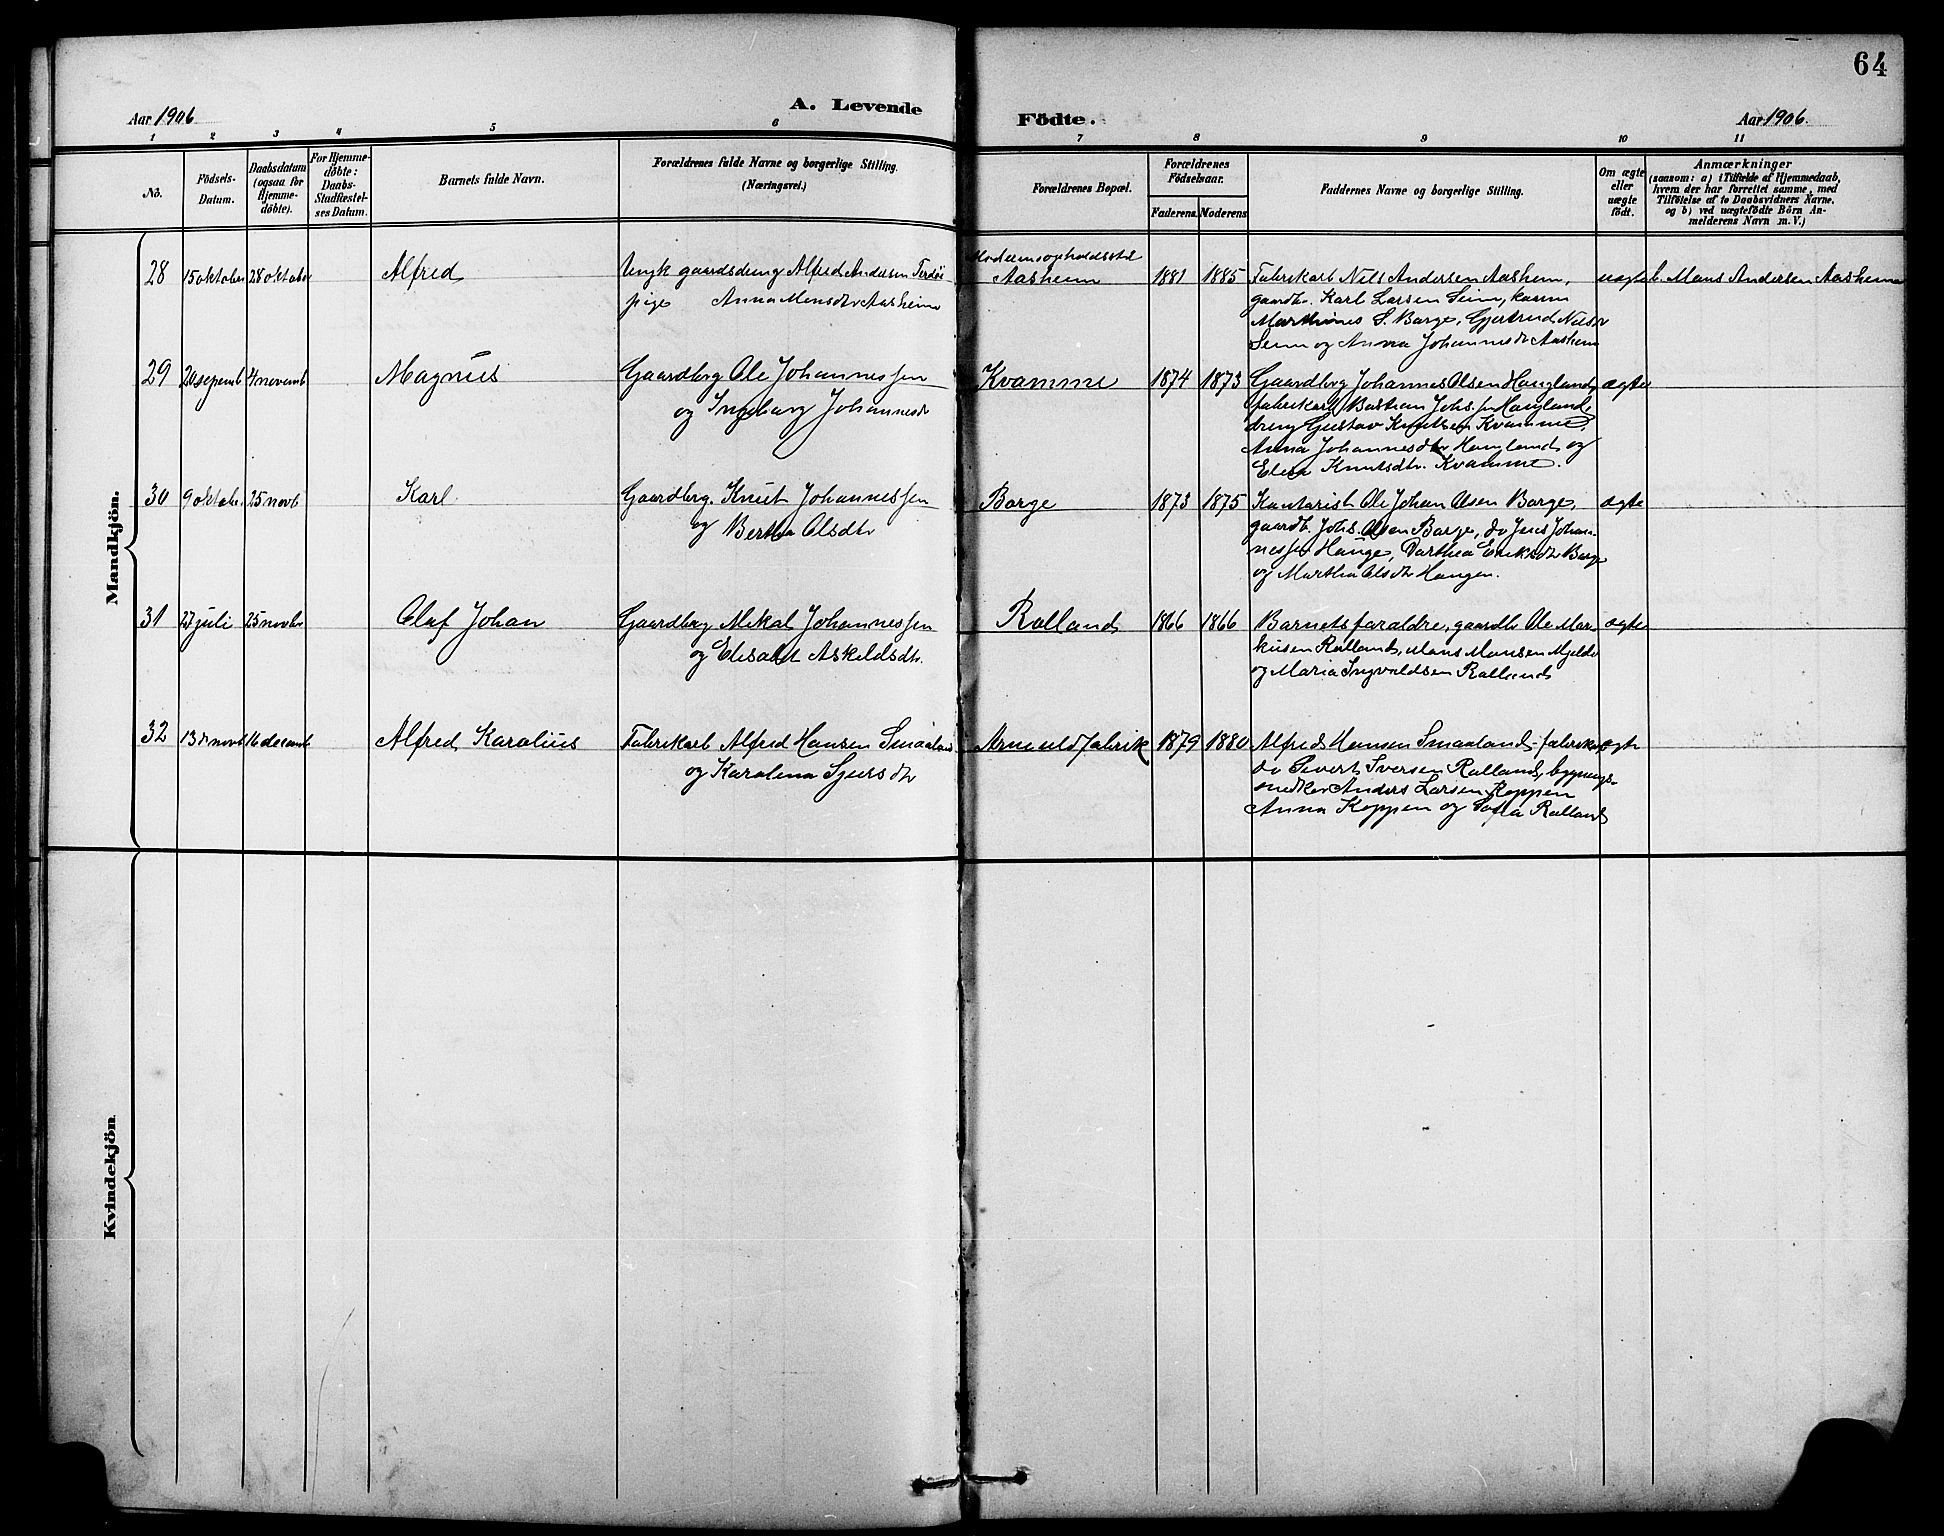 64
Aar 1906
A. Levende
Födte.
Aar 1906.
1 2 3 4 5 6 7 8 9 10 11
No.
Födsels-
Datum.
Daabsdatum
(ogsaa for
Hjemme-
döbte).
For Hjemme-
döbte:
Daabs-
Stadfæstel-
ses Datum.
Barnets fulde Navn.
Forældrenes fulde Navne og borgerlige Stilling.
(Næringsvei.)
Forældrenes Bopæl.
Forældrenes
Födselsaar.
Faderens. Moderens
Faddernes Navne og borgerlige Stilling.
Om ægte
eller
uægte
födt.
Anmærkninger
(saasom: a) i Tilfælde af Hjemmedaab,
hvem der har forrettet samme, med
Tilföielse af to Daabsvidners Navne.
og b) ved uægtefödte Börn An-
melderens Navn m. V.)
Mandkjön.
28 15 oktober 28 oktober Alfred
Ungk gaardsdreng Alfred Andersen
pige Anna Monsdtr Aasheim
Moderens opholdssted
Aasheim 1881 1885
Fabrikarb Nils Andersen Aasheim,
gaardbr. Karl Larsen Seim, kasim
Marthines S. Borge, Gjertrud Nilsdr
Seim og Anna Johannesdtr Aasheim
uægte b. Mons Andersen Aasheim
29 20 septemb 4 novemb Magnus
Gaardbrg Ole Johannessen
og Ingeborg Johannesdr
Kvamme 1874 1873
Gaardbrg Johannes Olsen Haugland,
fabrikarb Bastian Johs.sen Haugland,
dreng Gustav Knutsen Kvamme,
Anna Johannesdtr Haugland og
Elesa Knutsdtr. Kvamme.
ægte
30 9 oktobr. 25 novb Karl
Gaardbrg. Knut Johannessen
og Bertha Olsdtr
Borge 1873 1875
Kontorist Ole Johan Olsen Borge,
gaardb. Johs. Olsen Borge, do Jens Johan-
nessen Hauge, Dorthea Eriksdtr Borge
og Martha Olsdtr Haugen.
ægte
31 27 juli 25 novbr Olaf Johan
Gaardbrg Mikal Johannessen
og Elisabet Askeldsdtr.
Rolland 1866 1866
Barnets foraldre, gaardbr Ole Mar-
kusen Rolland, Mons Monsen Mjelde
og Maria Ingvaldsen Rolland
ægte
32 13de novb 16 decemb Alfred Karolius
Fabrikarb Alfred Hansen Smaaland
og Karolina Sjursdtr
Arnevld fabrik 1879 1880
Alfred Hansen Smaaland- fabrikarb
do Sivert Iversen Rolland, bygnings-
snedker Anders Larsen Koppen
Anna Koppen og Sofia Rolland
ægte
Kvindekjön